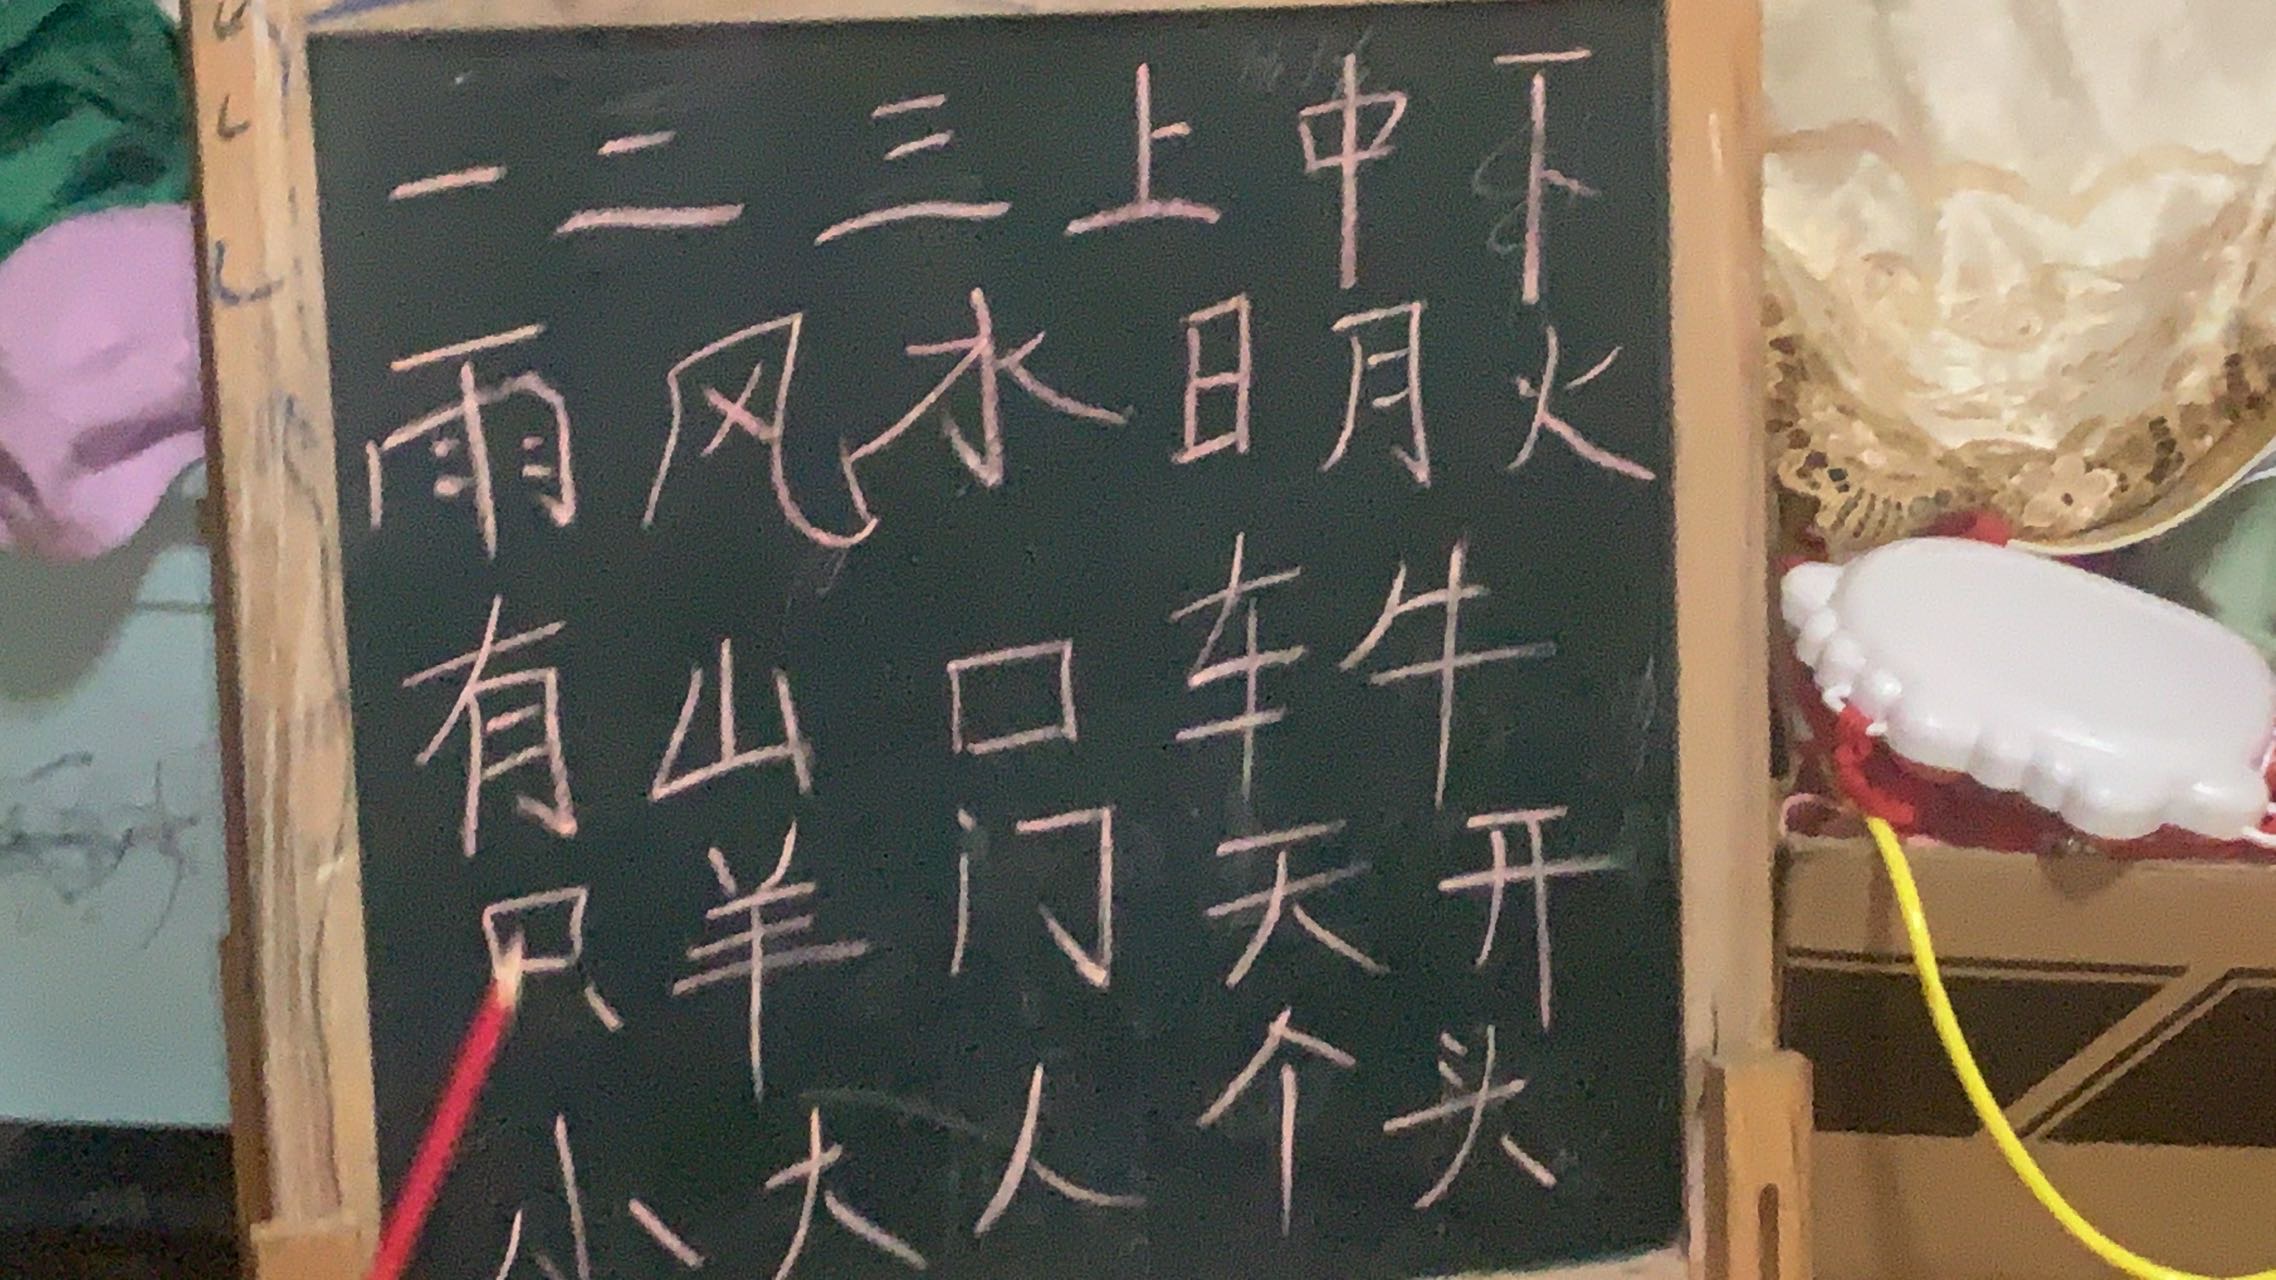 一 二 三 上 中 下
雨 风 水 日 月 火
有 山 口 车 牛
只 羊 门 天 开
小 大 人 个 头